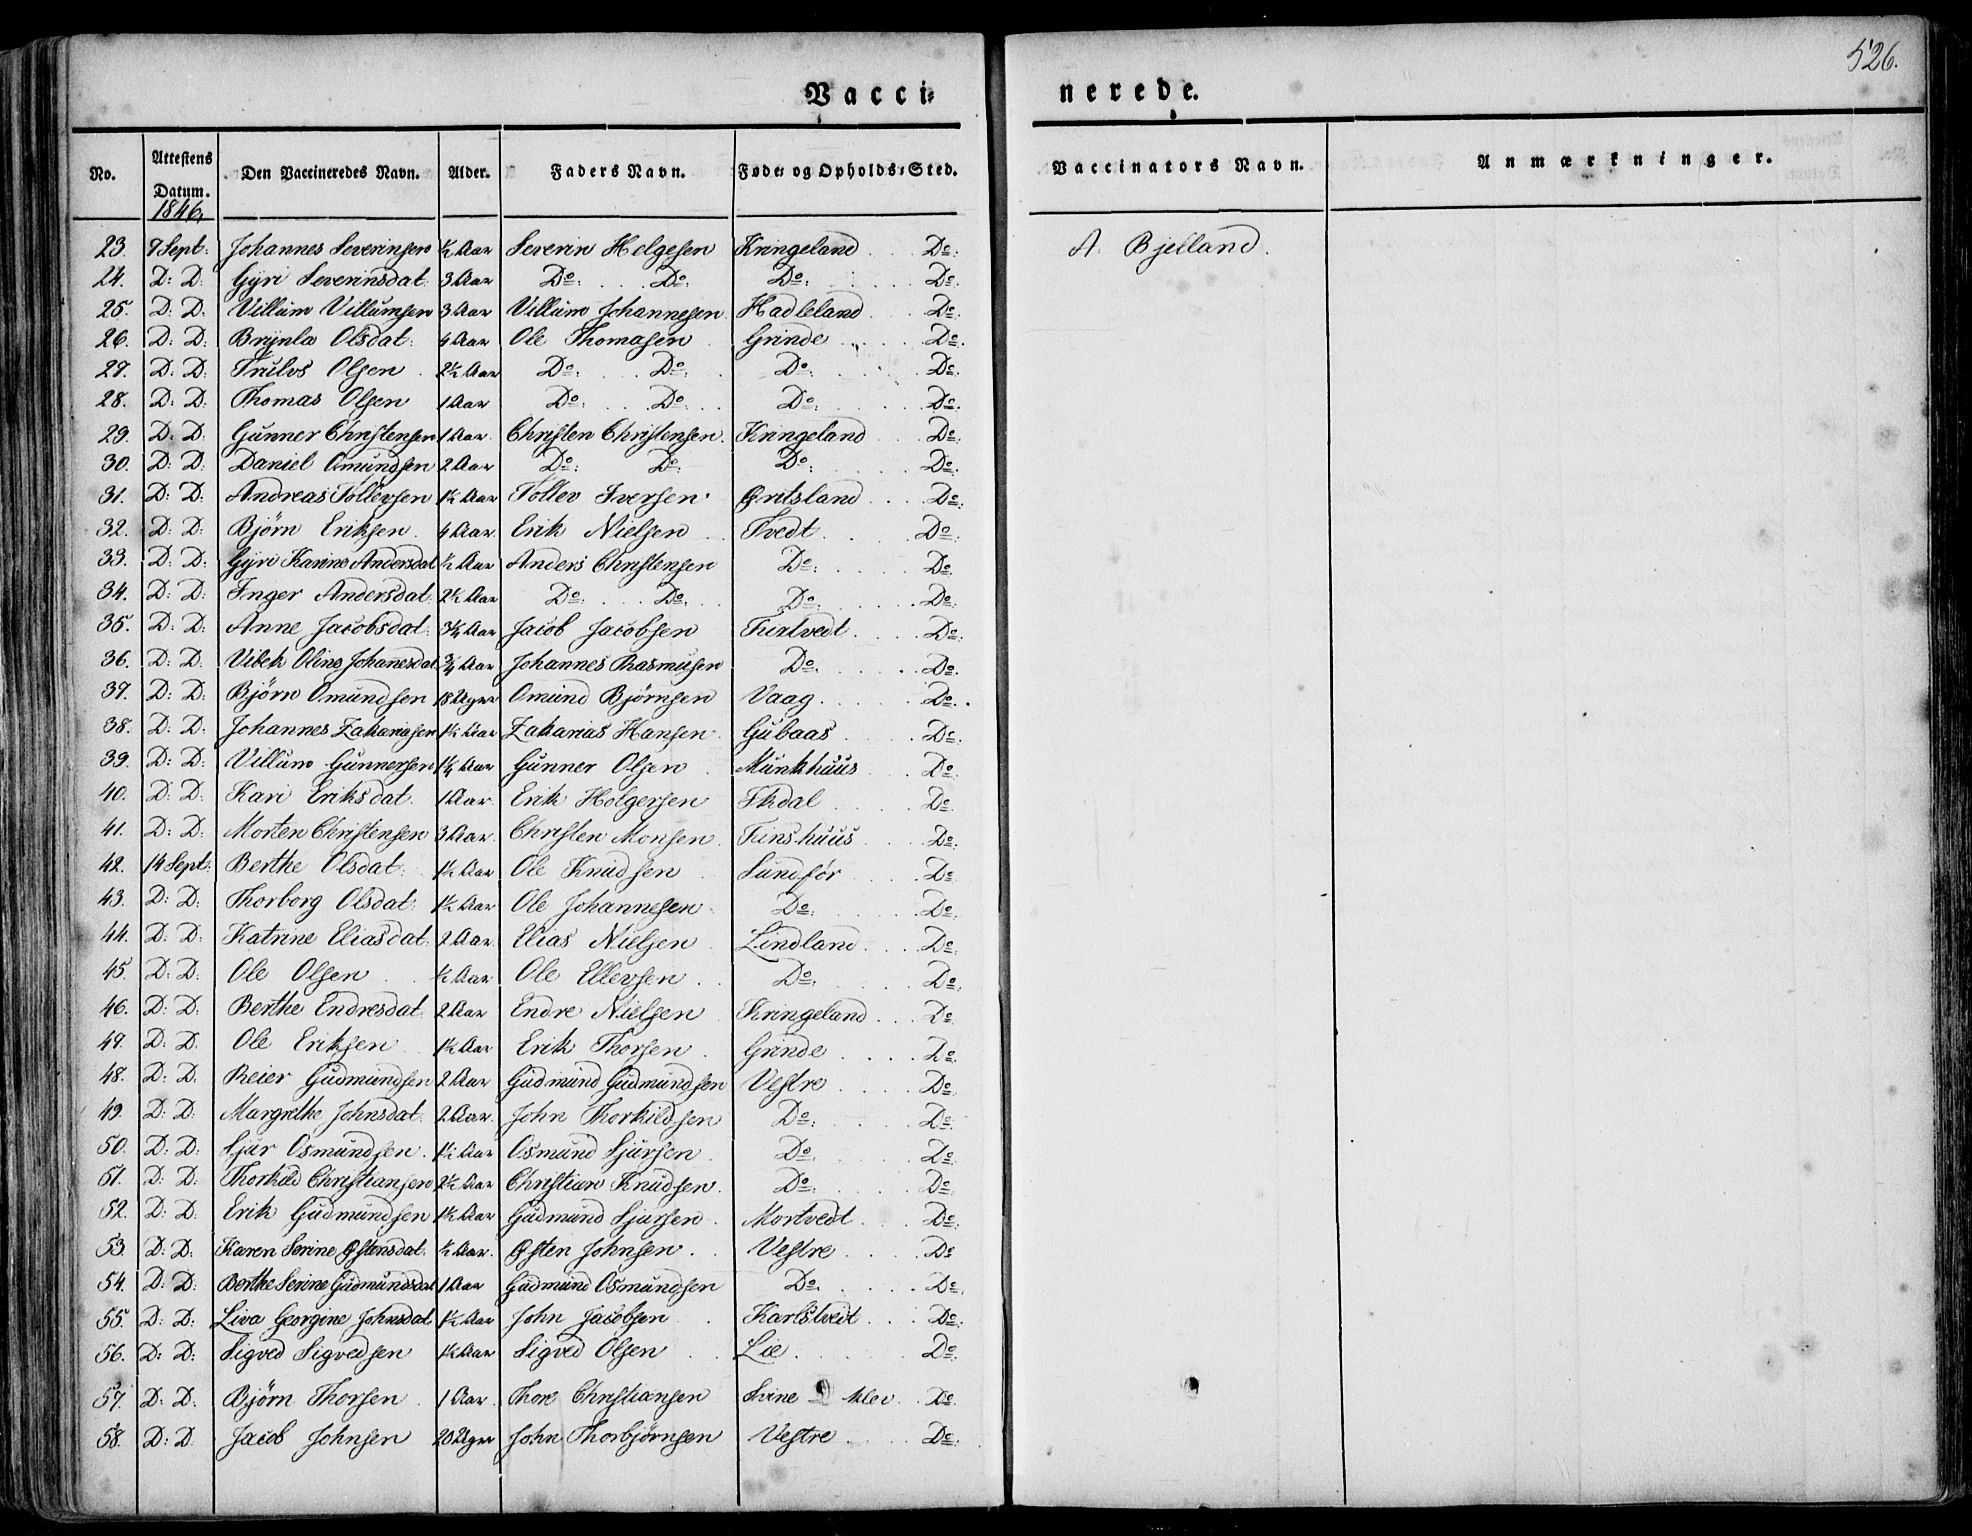 526.
Vacci= nerede.
No. Attestens Datum. Den Vaccineredes Navn. Alder. Faders Navn. Føde= og Opholds=Sted. Vaccinators Navn. Anmærkninger.
1846,
23. 7 Sept: Johannes Severinsen ½ Aar Severin Helgesen Kringeland Do: A. Bjelland.
24. D: D: Gyri Severinsdat: 3 Aar Do: Do: Do: Do:
25. D: D: Villum Villumsen 3 Aar Villum Johannesen Hadleland Do:
26. D: D: Brynla Olsdat: 4 Aar Ole Thomasen Grinde Do:
27. D: D: Trulvs Olsen 2½ Aar Do: Do: Do: Do:
28. D: D: Thomas Olsen 1 Aar Do: Do: Do: Do:
29. D: D: Gunner Christensen 1 Aar Christen Christensen Kringeland Do:
30. D: D: Daniel Omundsen 2 Aar Do: Do: Do: Do:
31. D: D: Andreas Tollevsen 1½ Aar Tollev Iversen Øritsland Do:
32. D: D: Bjørn Eriksen 4 Aar Erik Nielsen Tvedt Do:
33. D: D: Gyri Karine Andersdat ½ Aar Anders Christensen Do: Do:
34. D: D: Inger Andersdat: 2½ Aar Do: Do: Do: Do:
35. D: D: Anne Jacobsdat: 3¼ Aar Jacob Jacobsen Furtvedt Do:
36. D: D: Vibek Oline Johanesdat ¾ Aar Johannes Rasmusen Do: Do:
37. D: D: Bjørn Omundsen 18 Uger Omund Bjørnsen Vaag Do:
38. D: D: Johannes Zakariasen 1½ Aar Zakarias Hansen Gubaas Do:
39. D: D: Villum Gunnersen 1¼ Aar Gunner Olsen Munkhuus Do:
40. D: D: Kari Eriksdat. 1 Aar. Erik Holgersen Ikdal Do:
41. D: D: Morten Christensen 3 Aar. Christen Monsen Finshuus Do:
42. 14 Sept: Berthe Olsdat: 1½ Aar Ole Knudsen Sundfør Do:
43. D: D: Thorborg Olsdat: 1½ Aar Ole Johannesen Do: Do:
44. D: D: Katrine Eliasdat: 2 Aar Elias Nielsen Lindland Do:
45. D: D: Ole Olsen ½ Aar Ole Ellevsen Do: Do:
46. D: D: Berthe Endresdat 2 Aar Endre Nielsen Kringeland Do:
47. D: D: Ole Eriksen 1½ Aar Erik Thorsen Grinde Do:
48. D: D: Reier Gudmundsen 2 Aar Gudmund Gudmundsen Vestre Do:
49. D: D: Margrethe Johnsdat: 2 Aar. John Thorkildsen Do: Do:
50. D: D: Sjur Osmundsen. 1½ Aar Osmund Sjursen Do: Do:
51. D: D: Thorkild Christiansen 2½ Aar Christian Knudsen. Do: Do:
52. D: D: Erik Gudmundsen 1½ Aar Gudmund Sjursen Mortvedt Do:
53. D: D: Karen Serine Østensdat: ½ Aar. Østen Johnsen Vestre Do:
54. D: D: Berthe Serine Gudmundsdat 1 Aar Gudmund Osmundsen Do: Do:
55. D: D: Liva Georgine Johnsdat 1½ Aar John Jacobsen Karlstvedt Do:
56. D: D: Sigved Sigvedsen 1½ Aar Sigved Olsen Lie Do:
57. D: D: Bjørn Thorsen 1 Aar Thore Christiansen Svine klev Do:
58. D: D: Jacob Johnsen 20 Uger John Thorbjørnsen Vestre Do: